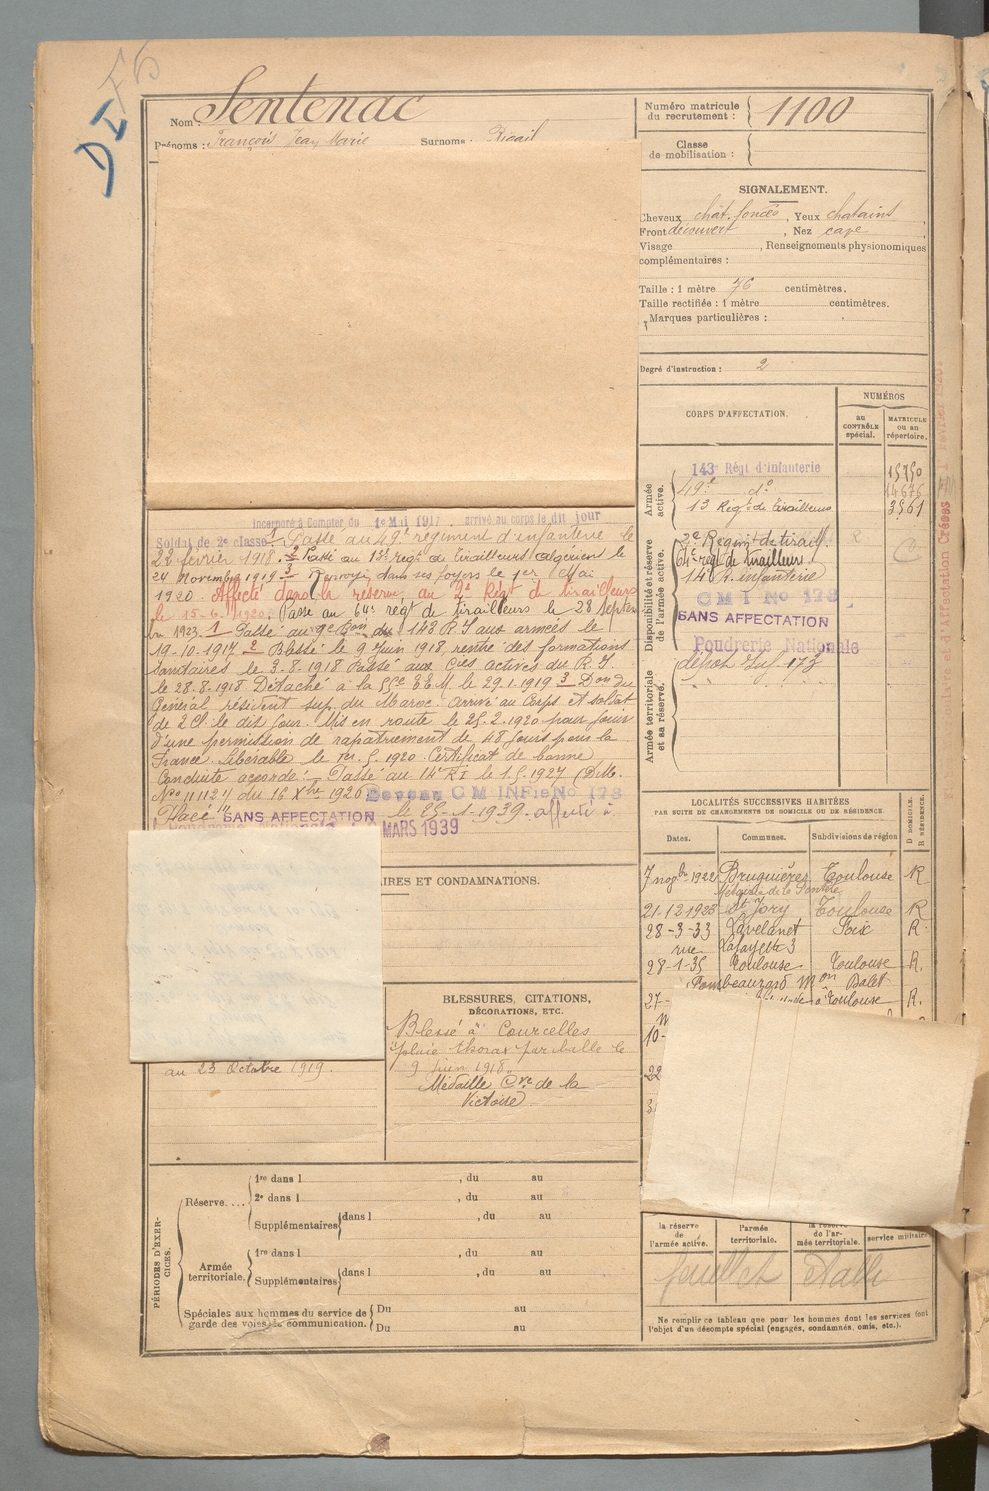 F6
D I
Nom : Sentenac
Prénoms : François Jean Marie Surnoms : Rigail
Numéro matricule du recrutement : 1100
Classe de mobilisation :
SIGNALEMENT.
Cheveux chât. foncés, Yeux chatains
Front découvert, Nez cave
Visage , Renseignements physionomiques
complémentaires :
Taille : 1 mètre 76 centimètres.
Taille rectifiée : 1 mètre centimètres.
Marques particulières :
Degré d'instruction : 2
CORPS D'AFFECTATION.
NUMÉROS
au CONTRÔLE spécial.
MATRICULE ou au répertoire.
Armée active.
143e Régt d'Infanterie 15750
49e do 14676
13 Régt de tirailleurs 3561
Disponibilité et réserve de l'armée active.
2e Regim de tirail. R
64e régt de tirailleurs
14 R. infanterie
C M I No 173
SANS AFFECTATION
Poudrerie Nationale
Armée territoriale et sa réserve.
dépôt Inf. 173
Incorporé à Compter du 1er Mai 1917 arrivé au corps le dit jour
Soldat de 2e classe. 1 Passé au 49e régiment d'infanterie le
22 février 1918. 2 Passé au 13e régt de tirailleurs algériens le
24 Novembre 1919 3 Renvoyé dans ses foyers le 1er Mai
1920. Affecté dans la réserve au 2e Régt de tirailleurs
le 15-6-1920. Passé au 64e régt de tirailleurs le 28 Septem
bre 1923. 1 Passé au 9e Bon du 143 R.I aux armées le
19-10-1917 2 Blessé le 9 Juin 1918, rentré des formations
sanitaires le 3-8-1918 Passé aux Cies actives du R.I.
le 28.8.1918 Détaché à la le 29.1.1919 3 Don du
Général résident sup. du Maroc. Arrivé au Corps et soldat
de 2 Cl. le dit jour. Mis en route le 25.2.1920 pour jouir
d'une permission de rapatriement de 48 jours pour la
France. Libérable le 1er.5.1920 Certificat de bonne
Conduite accordé. Passé au 14e RI le 1.5.1927 (D. M.
No 11112 du 16 Xbre 1926 Devenu C M INFie No 173
Placé "SANS AFFECTATION" le 25-1-1939. affecté à
MARS 1939
IRES ET CONDAMNATIONS.
BLESSURES, CITATIONS,
DÉCORATIONS, ETC.
Blessé à Courcelles
plaie thorax par balle le
9 juin 1918.
Médaille Cve de la
Victoire
au 23 Octobre 1919.
LOCALITÉS SUCCESSIVES HABITÉES
PAR SUITE DE CHANGEMENTS DE DOMICILE OU DE RÉSIDENCE.
Dates. Communes. Subdivisions de région D DOMICILE. R RÉSIDENCE.
7 novbre 1922 Bruguières Toulouse R
21-12-1923 St Jory Toulouse R
28-3-33 Lavelanet Foix R.
rue Lafayette 3
28-1-35 Toulouse Toulouse R.
Balet
27- à Toulouse R.
10-
22
3
PÉRIODES D'EXERCICES.
Réserve....
1re dans l , du au
2e dans l , du au
Supplémentaires dans l , du au
Armée territoriale.
1re dans l , du au
Supplémentaires dans l , du au
Spéciales aux hommes du service de
garde des voies de communication.
Du au
Du au
la réserve de l'armée active.
l'armée territoriale.
la réserve de l'armée territoriale.
service militaire
Ne remplir ce tableau que pour les hommes dont les services font
l'objet d'un décompte spécial (engagés, condamnés, omis, etc.).